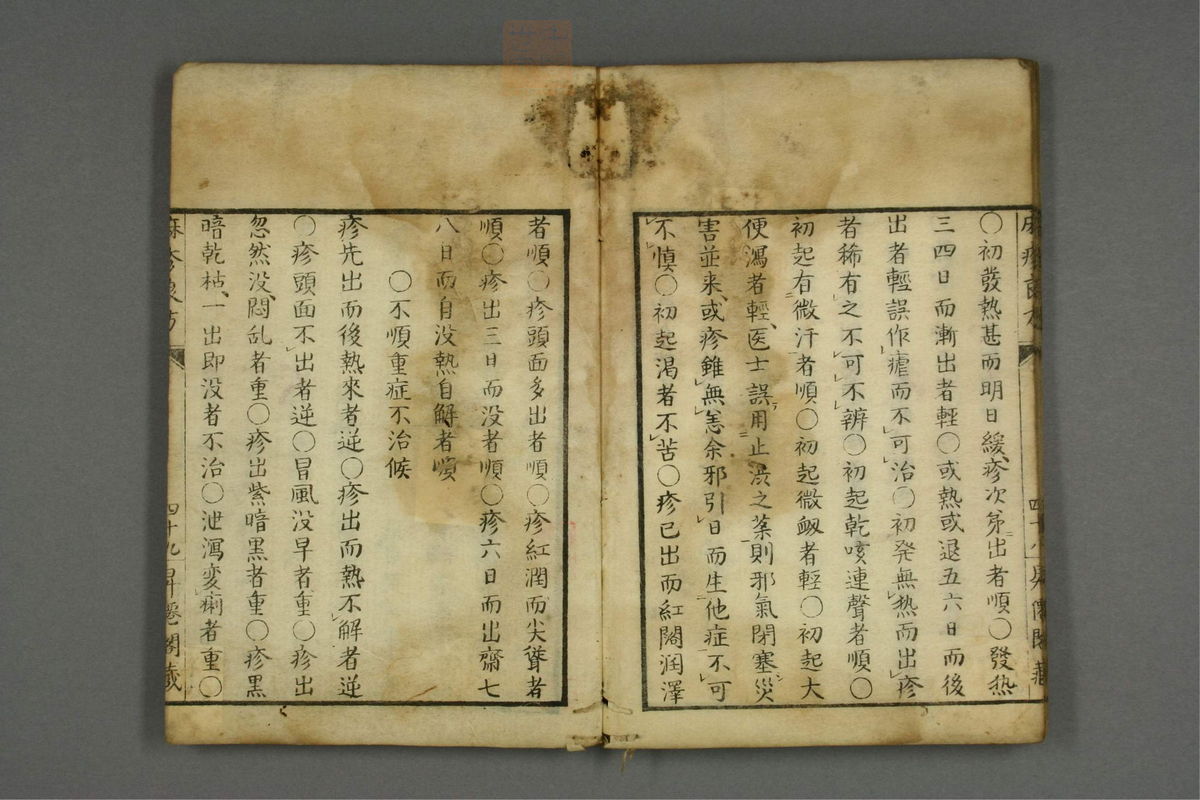 〇初發熱甚而明日緩疹次第出者順〇發热
三四日而漸出者輕〇或熱或退五六日而後
出者輕誤作瘧而不可治〇初発無热而出疹
者稀有之不可不辨〇初起乾咳連聲者順〇
初起有微汗者順〇初起微衂者輕〇初起大
便瀉者輕医士誤用止渋之薬則邪氣閉塞災
害並来或疹雖無恙余邪引日而生他症不可
不慎〇初起渴者不苦〇疹已出而紅闊润澤
者順〇疹頭面多出者順〇疹紅潤而尖聳者
順〇疹出三日而没者順〇疹六日而出齋七
八日而自没熱自解者順
〇不順重症不治候
疹先出而後熱來者逆〇疹出而熱不解者逆
〇疹頭面不出者逆〇冒風没早者重〇疹出
忽然没悶乱者重〇疹出紫暗黒者重〇疹黒
暗乾枯一出即没者不治〇泄瀉変痢者重〇
四十九